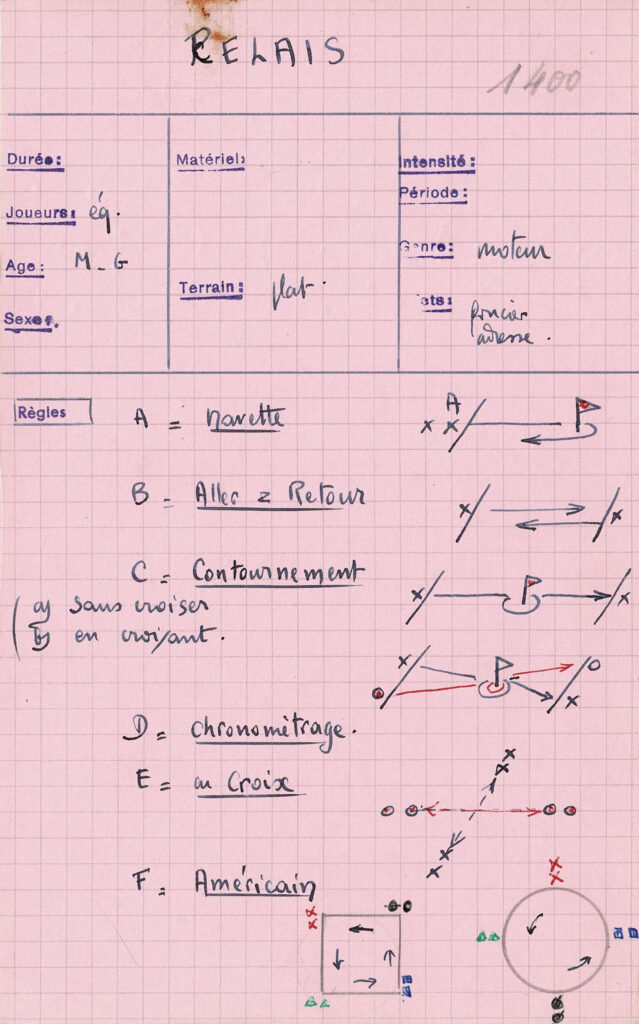 RELAIS
1400
Durée:
Joueurs: éq.
Age: M-G
Sexe:
Matériel:
Terrain: plat.
Intensité:
Période:
Genre: moteur
adresse.
Règles
A = Navette
A
B = Aller & Retour
C = Contournement
a) sans croiser
b) en croisant.
D = Chronométrage.
E = en Croix
F = Américain